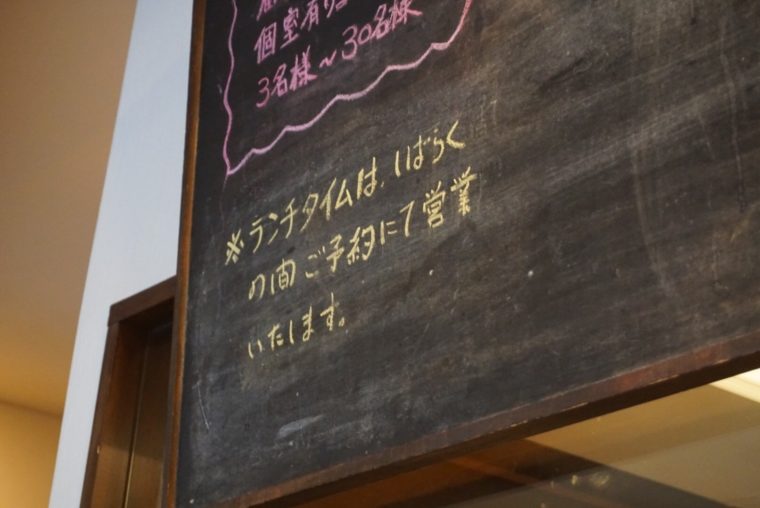 個室有り
3名様～30名様
※ランチタイムは、しばらく
の間ご予約にて営業
いたします。